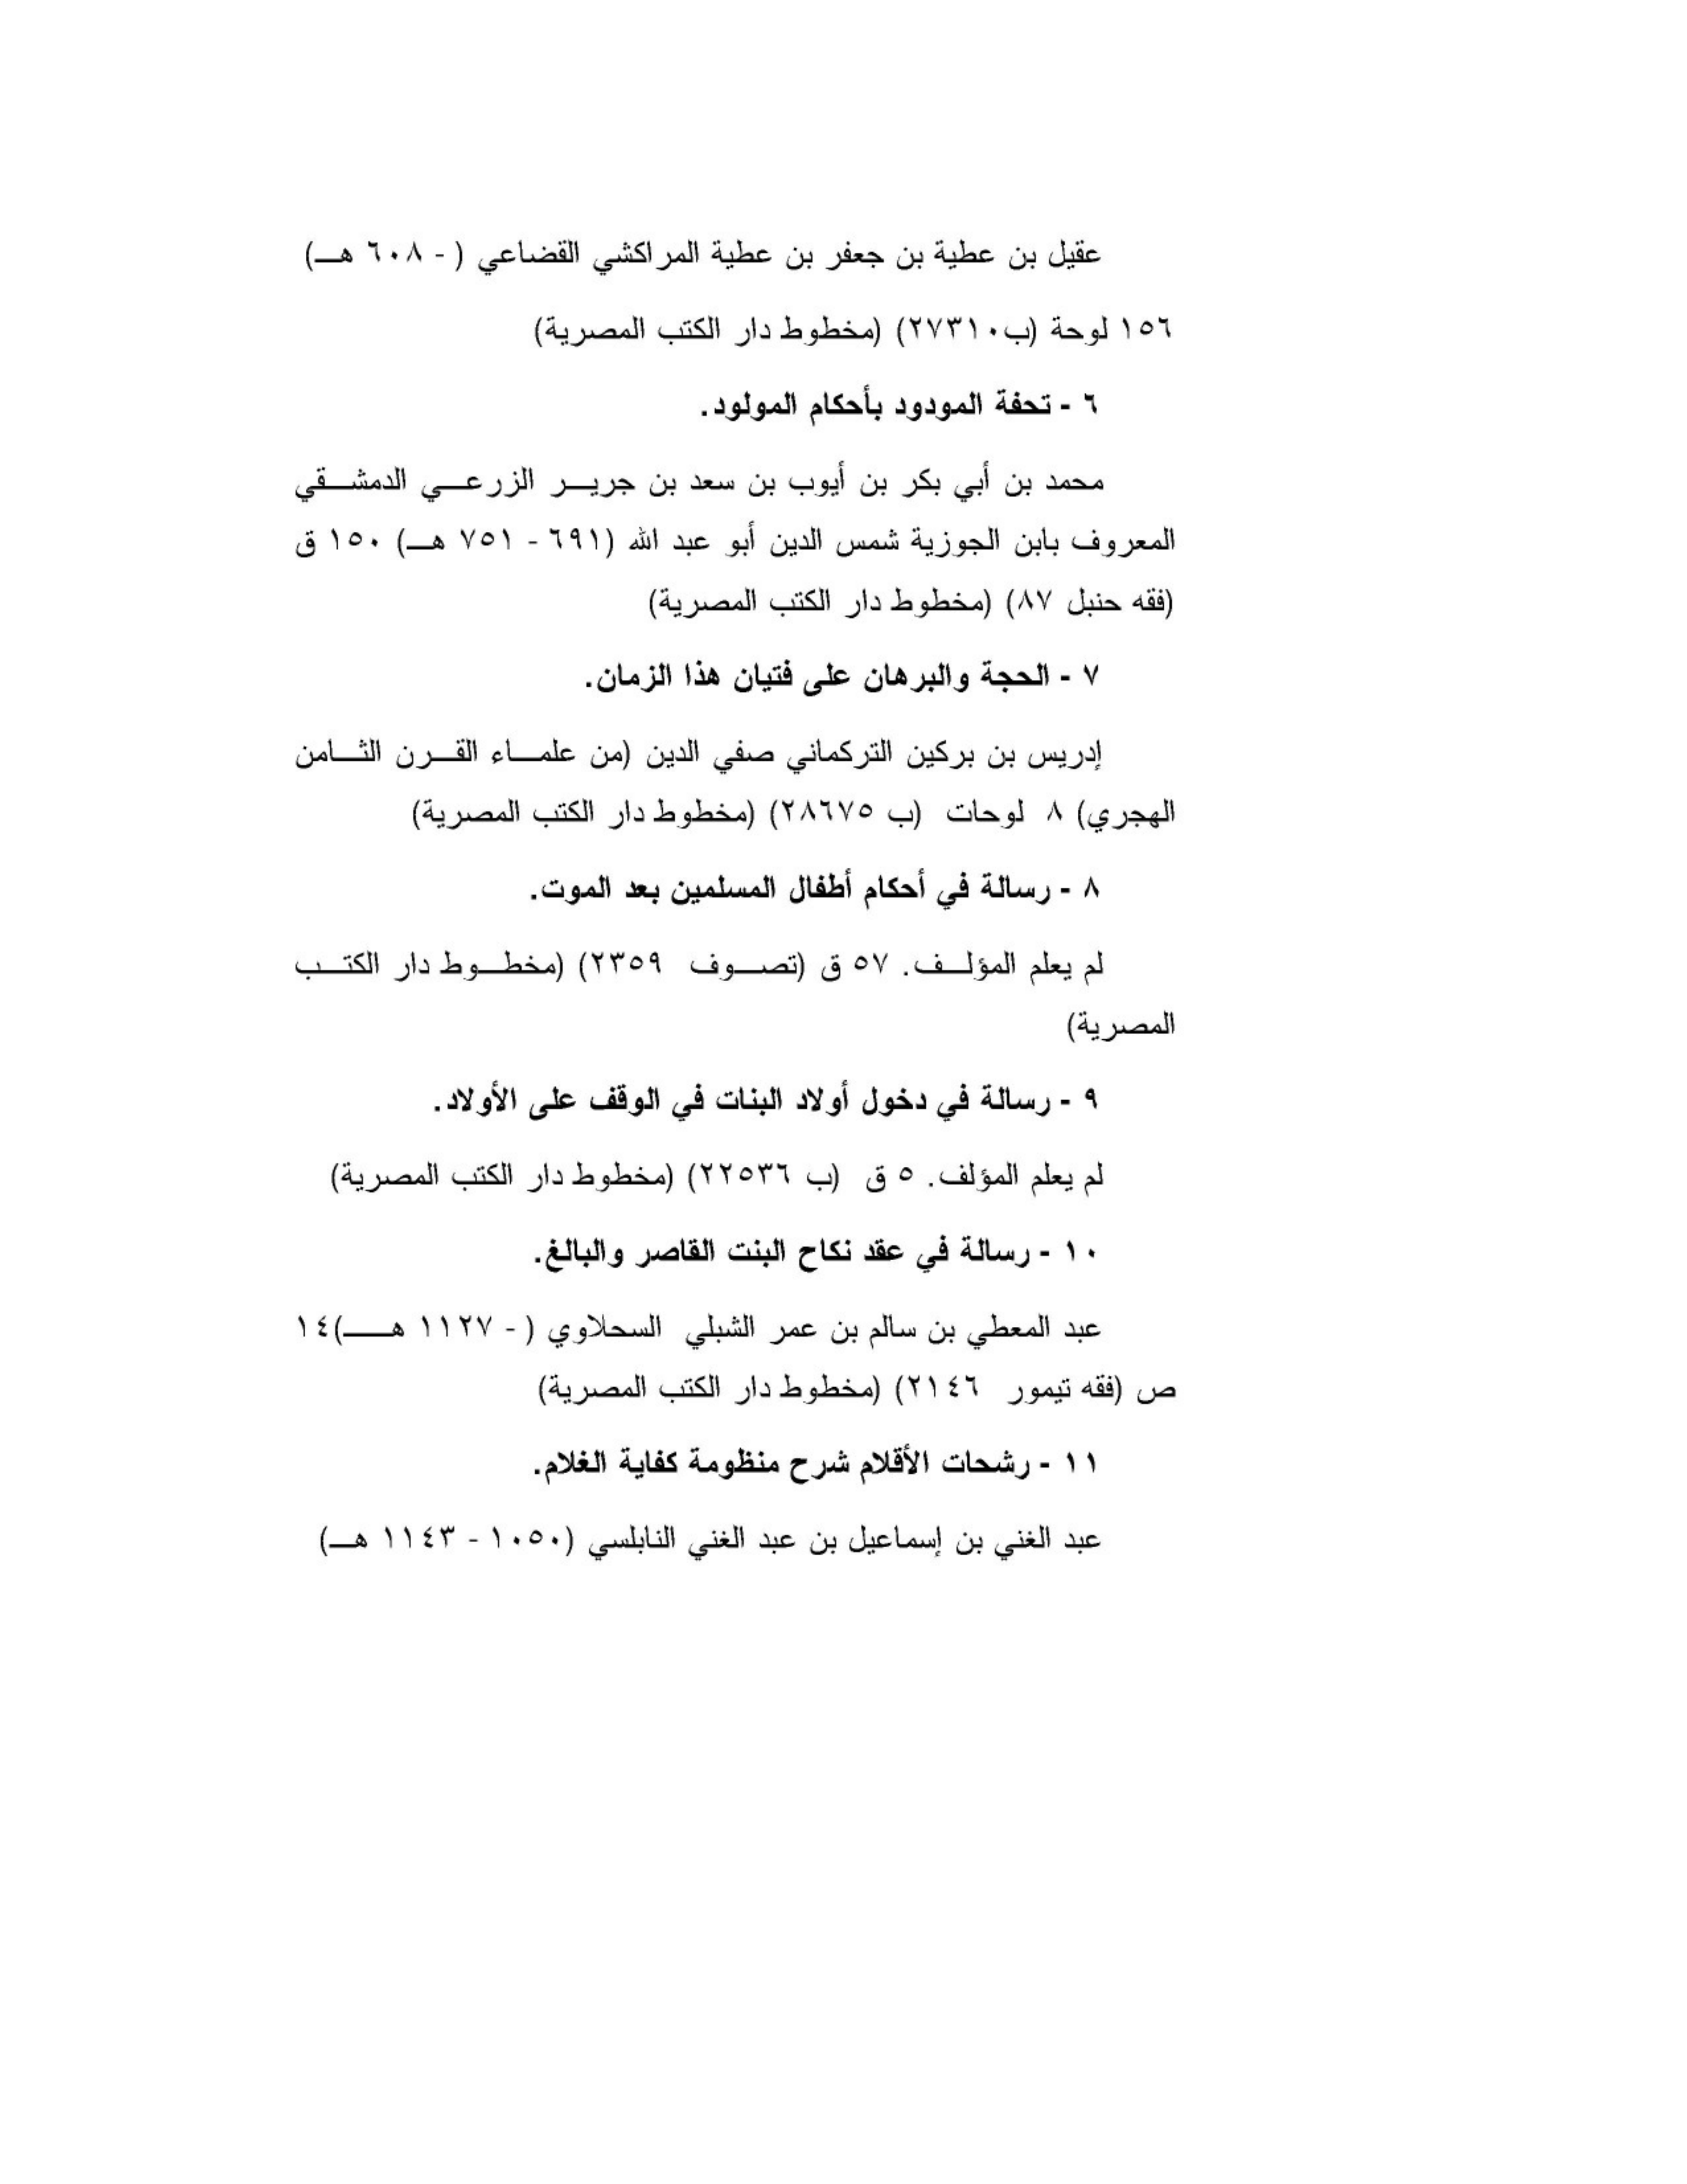 عقيل بن عطية بن جعفر بن عطية المراكشي القضاعي ( - ٦٠٨ هـ)
١٥٦ لوحة (ب٢٧٣١٠) (مخطوط دار الكتب المصرية)
٦ - تحفة المودود بأحكام المولود.
محمد بن أبي بكر بن أيوب بن سعد بن جرير الزرعي الدمشقي
المعروف بابن الجوزية شمس الدين أبو عبد الله (٦٩١ - ٧٥١ هـ) ١٥٠ ق
(فقه حنبل ٨٧) (مخطوط دار الكتب المصرية)
٧ - الحجة والبرهان على فتيان هذا الزمان.
إدريس بن بركين التركماني صفي الدين (من علماء القرن الثامن
الهجري) ٨ لوحات (ب ٢٨٦٧٥) (مخطوط دار الكتب المصرية)
٨ - رسالة في أحكام أطفال المسلمين بعد الموت.
لم يعلم المؤلف. ٥٧ ق (تصوف ٢٣٥٩) (مخطوط دار الكتب
المصرية)
٩ - رسالة في دخول أولاد البنات في الوقف على الأولاد.
لم يعلم المؤلف. ٥ ق (ب ٢٢٥٣٦) (مخطوط دار الكتب المصرية)
١٠ - رسالة في عقد نكاح البنت القاصر والبالغ.
عبد المعطي بن سالم بن عمر الشبلي السحلاوي ( - ١١٢٧ هـ)١٤
ص (فقه تيمور ٢١٤٦) (مخطوط دار الكتب المصرية)
١١ - رشحات الأقلام شرح منظومة كفاية الغلام.
عبد الغني بن إسماعيل بن عبد الغني النابلسي (١٠٥٠ - ١١٤٣ هـ)